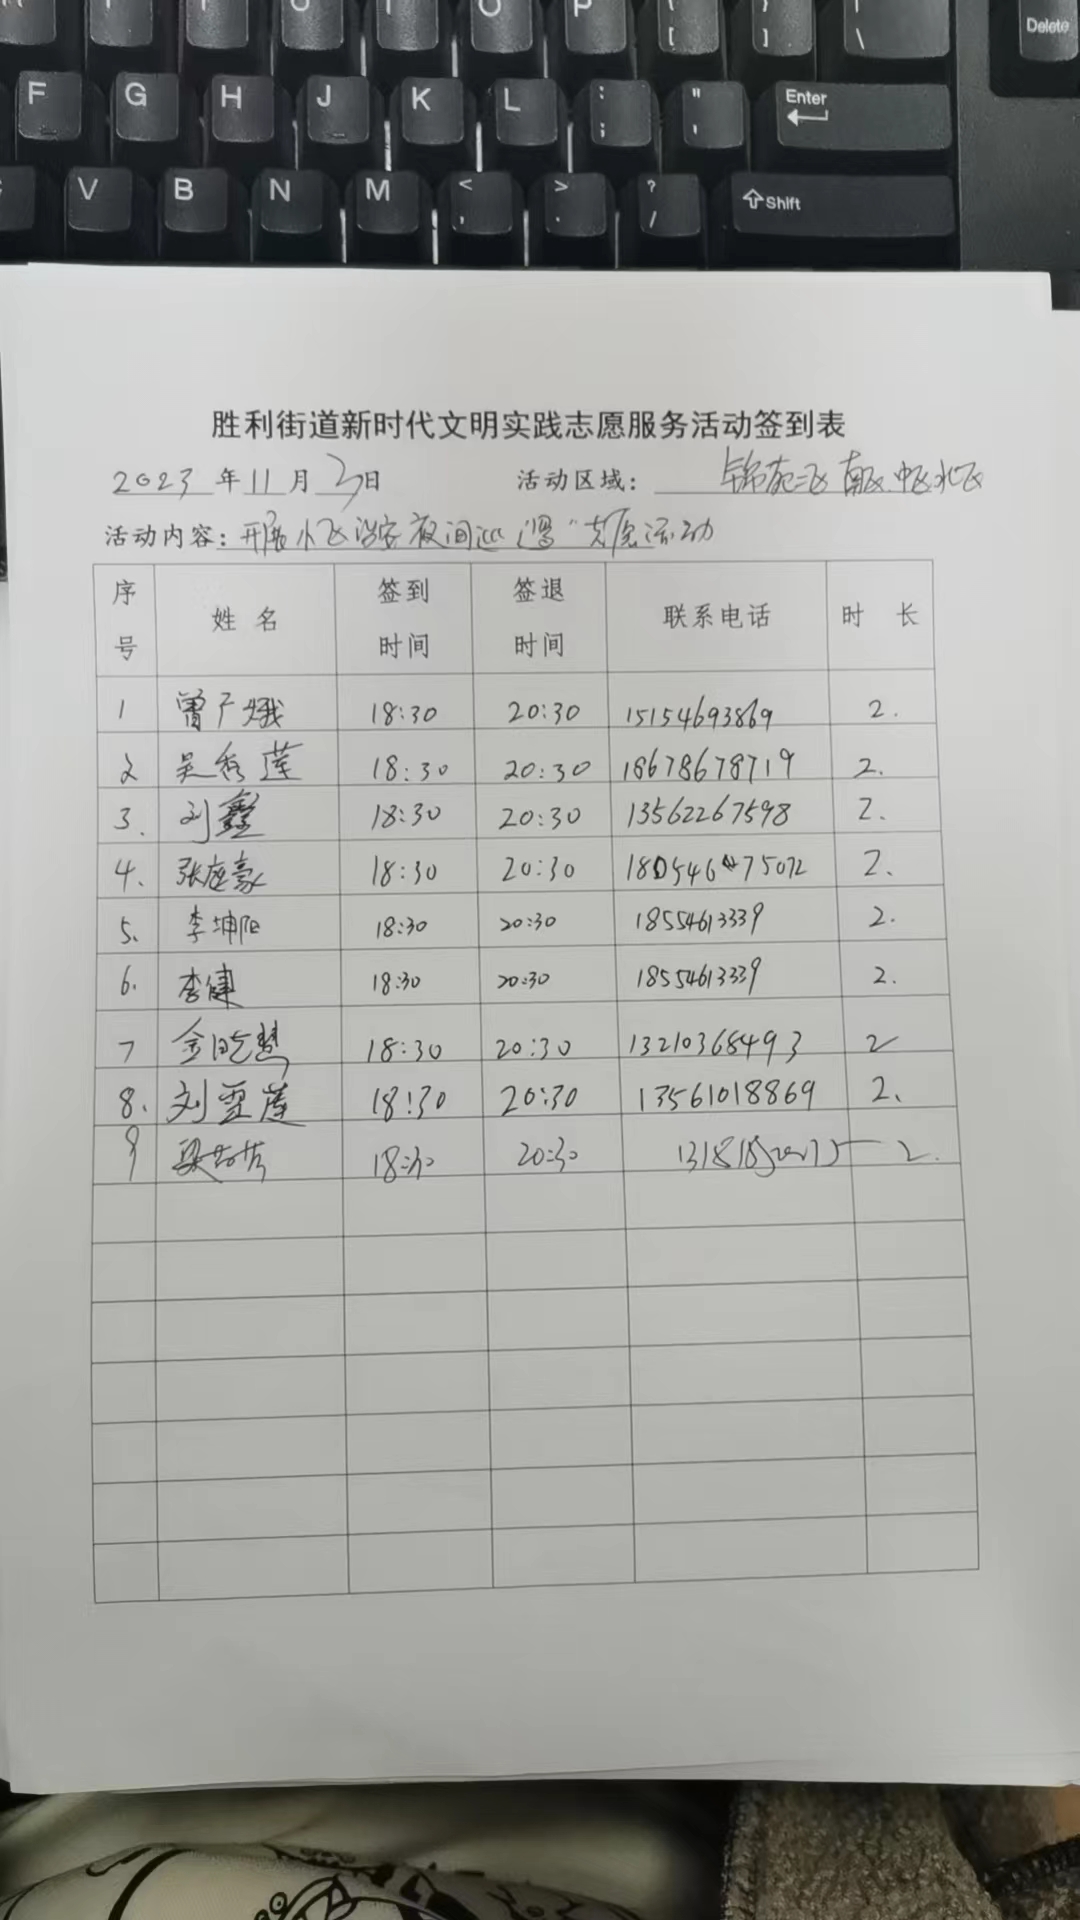 F G H J K L : ; " ' Enter
V B N M < , > . ? / Shift
Delete
胜利街道新时代文明实践志愿服务活动签到表
2023年11月3日 活动区域: 锦苑三区南区中区北区
活动内容: 开展小区治安夜间巡逻"志愿活动
序号 姓名 签到时间 签退时间 联系电话 时长
1 曾广娥 18:30 20:30 15154693869 2.
2 吴秀莲 18:30 20:30 18678678719 2.
3. 刘鑫 18:30 20:30 13562267598 2.
4. 张庭豪 18:30 20:30 2.
5. 李坤阳 18:30 20:30 18554613339 2.
6. 李健 18:30 20:30 18554613339 2.
7 金晓慧 18:30 20:30 13210368493 2
8. 刘雪莲 18:30 20:30 13561018869 2.
9 18:30 20:30 2.